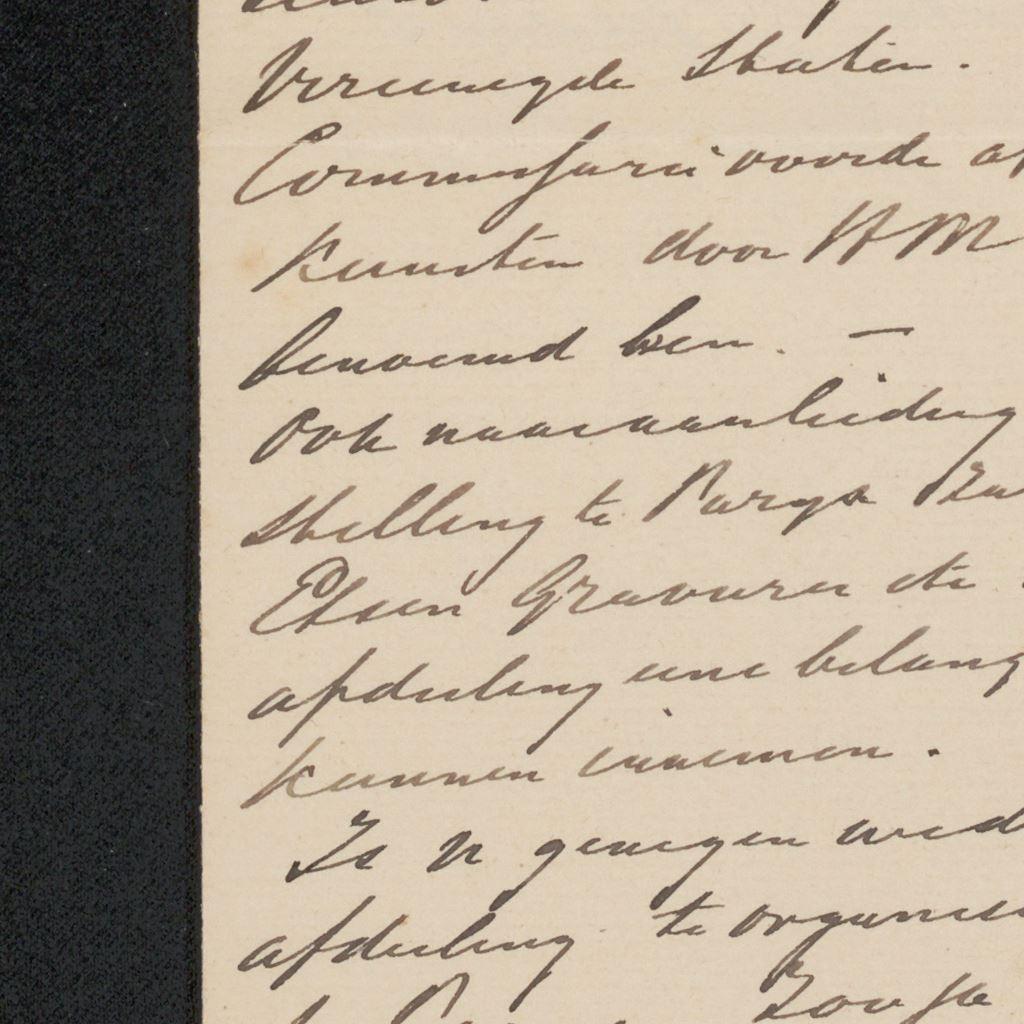 Vereenigde Staten.
Commissaris voor de
kunsten door HM
benoemd ben. —
Ook naar aanleiding
stelling te Parys Zu
Etsen Gravures etc
afdeeling eene belang
kunnen innemen.
Is U genegen wed
afdeeling te organise
Zou je